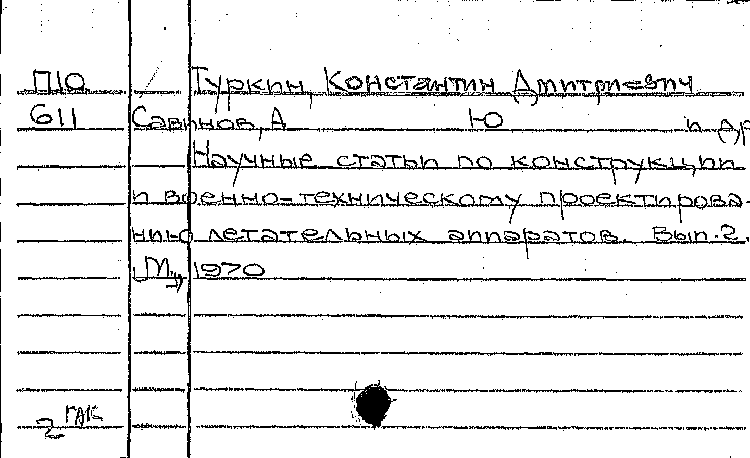 П10 Туркин, Константин Дмитриевич
611 Савинов, А Ю и др
Научные статьи по конструкции
и военно-техническому проектирова-
нию летательных аппаратов. Вып.2.
М., 1970
2 ГАК